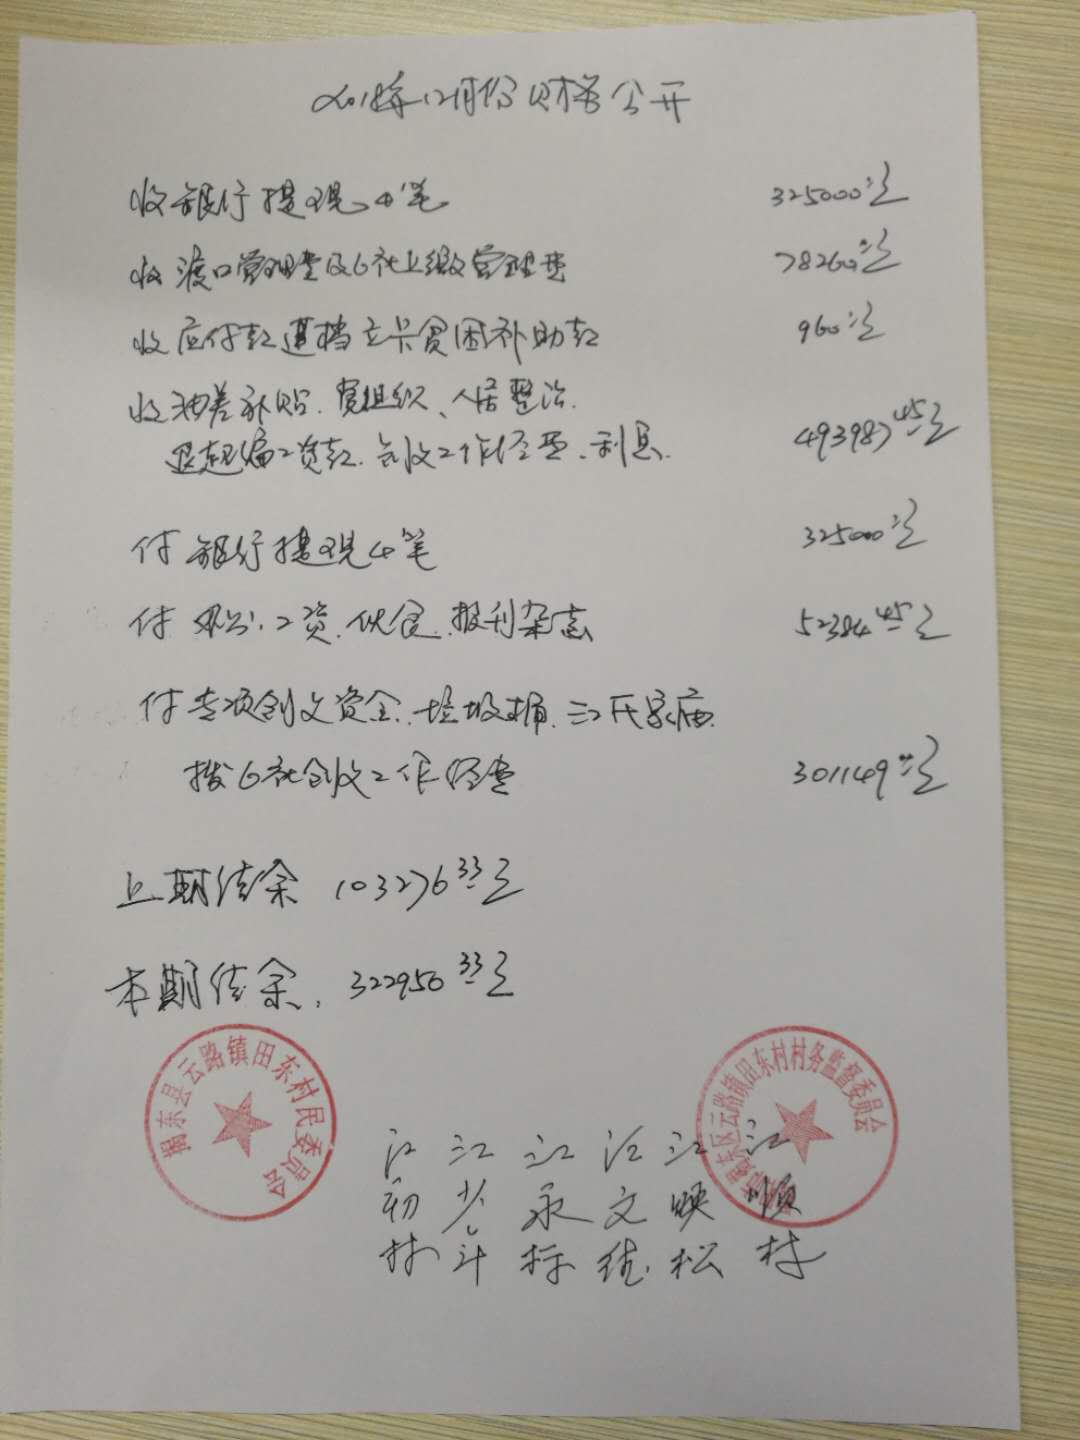 2018年12月份财务公开
收银行提现4笔 325000元
收渡口管理费及6社上缴管理费 78260元
收应付款建档立卡贫困补助款 960元
收油差补贴、党组织、人居整治、
工资款、创文工作经费、利息 493987.45元
付银行提现4笔 325000元
付办公、工资、伙食、报刊杂志 52384.45元
付专项创文资金、垃圾桶、
拨6社创文工作经费 301149元
上期结余 103276.33元
本期结余 322950.33元
揭东县云路镇田东村民委员会
东区云路镇田东村村务监督委员会
江 江 江 江 江 江
林 少斗 永标 文 映松 顺林